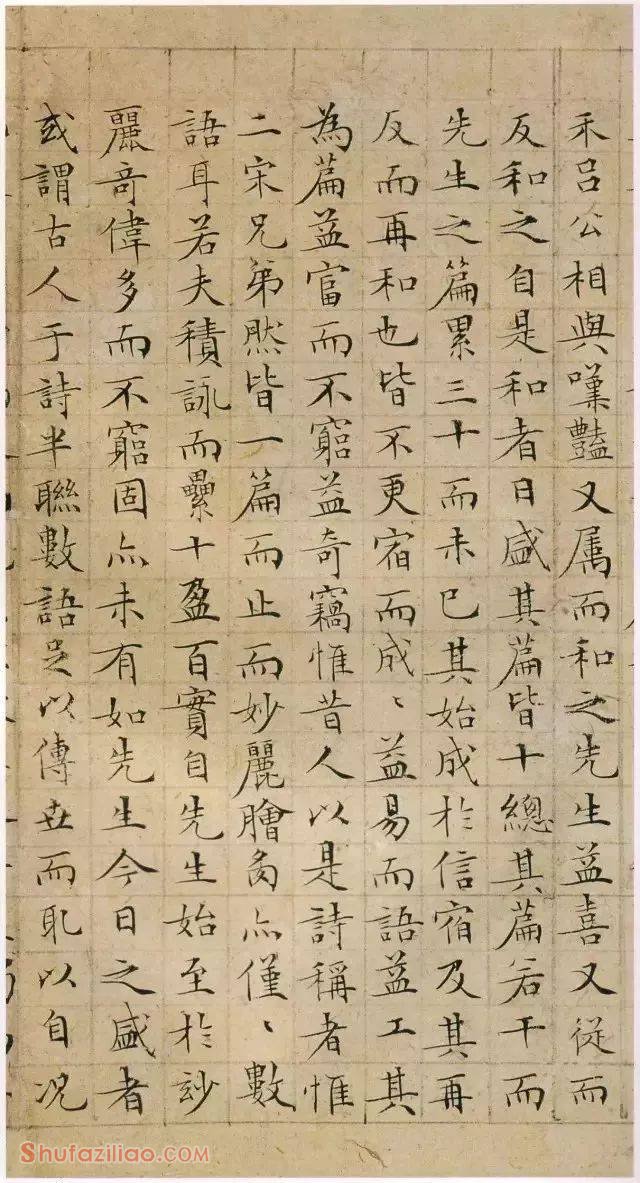 禾吕公相與嘆豔又属而和之先生益喜又從而
反和之自是和者日盛其篇皆十總其篇若干而
先生之篇累三十而未已其始成於信宿及其再
反而再和也皆不更宿而成、益易而語益工其
為篇益富而不窮益奇竊惟昔人以是詩稱者惟
二宋兄弟然皆一篇而止而妙麗膾炙亦僅、數
語耳若夫積詠而纍十盈百實自先生始至於玅
麗奇偉多而不窮固亦未有如先生今日之盛者
或謂古人于詩半聯數語足以傳世而以自况
Shufaziliao.com